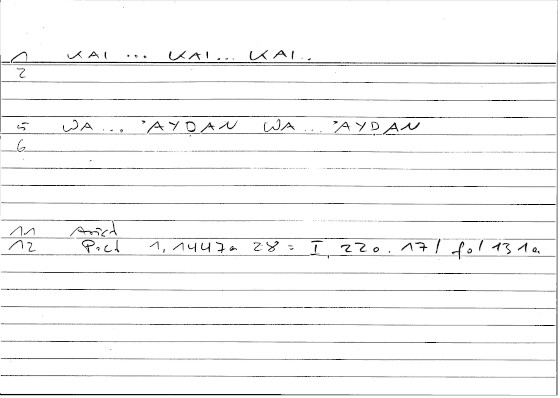 1 KAI ... KAI... KAI..
2
5 WA... 'AYDAN WA... 'AYDAN
6
11 Arist
12 Poet 1, 1447a 28 = I, 220.17/ fol 131a